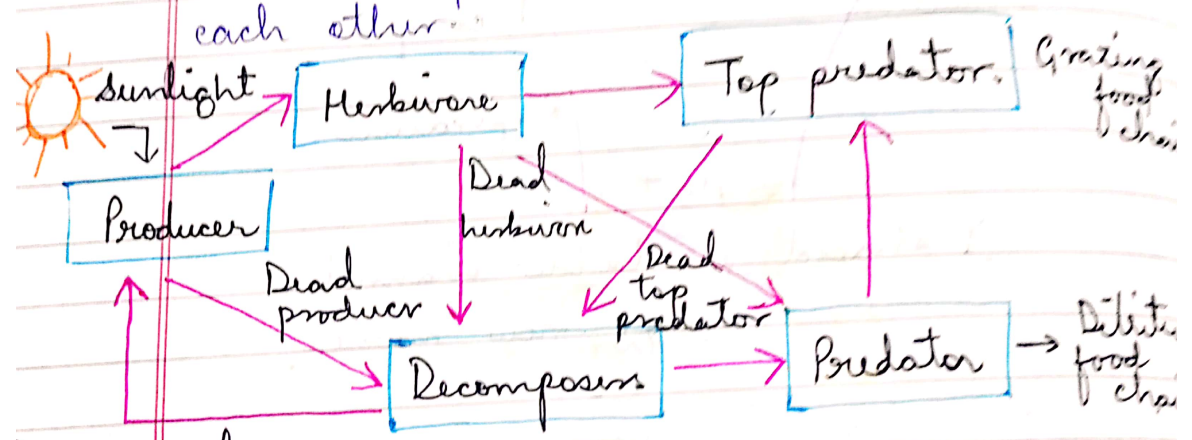 each other.
sunlight
Herbivore
Top predator.
Grazing
food
chai
Producer
Dead
herbivore
Dead
producer
Dead
top
predator
Decomposers
Predator
→ Ditrit
food
chai